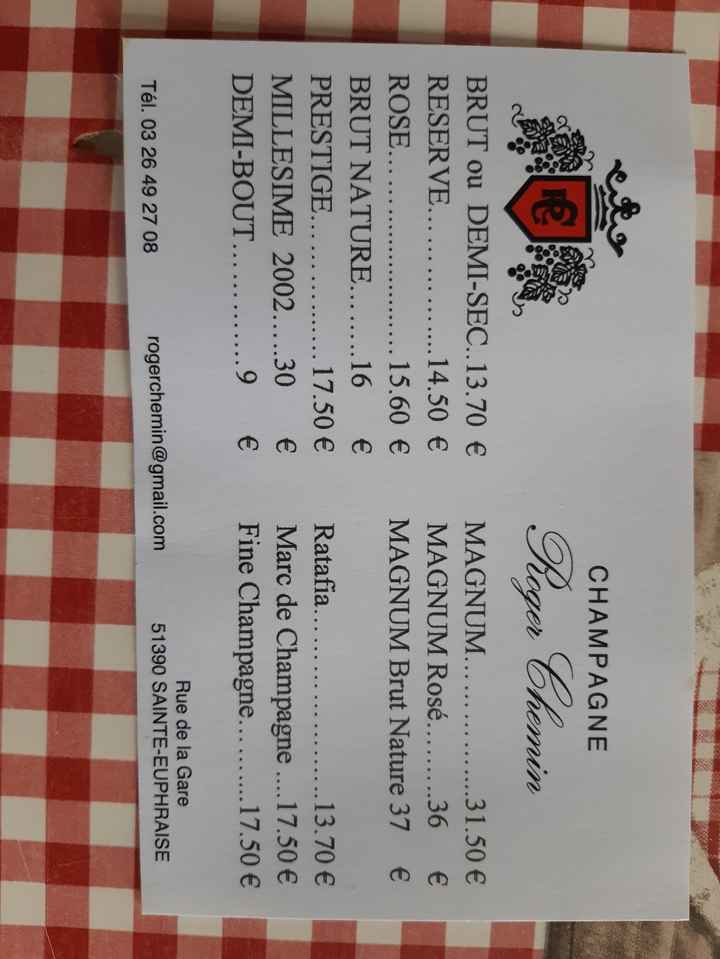 CHAMPAGNE
Roger Chemin
BRUT ou DEMI-SEC..13.70 €
RESERVE...............14.50 €
ROSE.......................15.60 €
BRUT NATURE........16 €
PRESTIGE...............17.50 €
MILLESIME 2002.....30 €
DEMI-BOUT............9 €
MAGNUM.................31.50 €
MAGNUM Rosé........36 €
MAGNUM Brut Nature 37 €
Ratafia.......................13.70 €
Marc de Champagne ....17.50 €
Fine Champagne..........17.50 €
Rue de la Gare
Tél. 03 26 49 27 08 rogerchemin@gmail.com 51390 SAINTE-EUPHRAISE